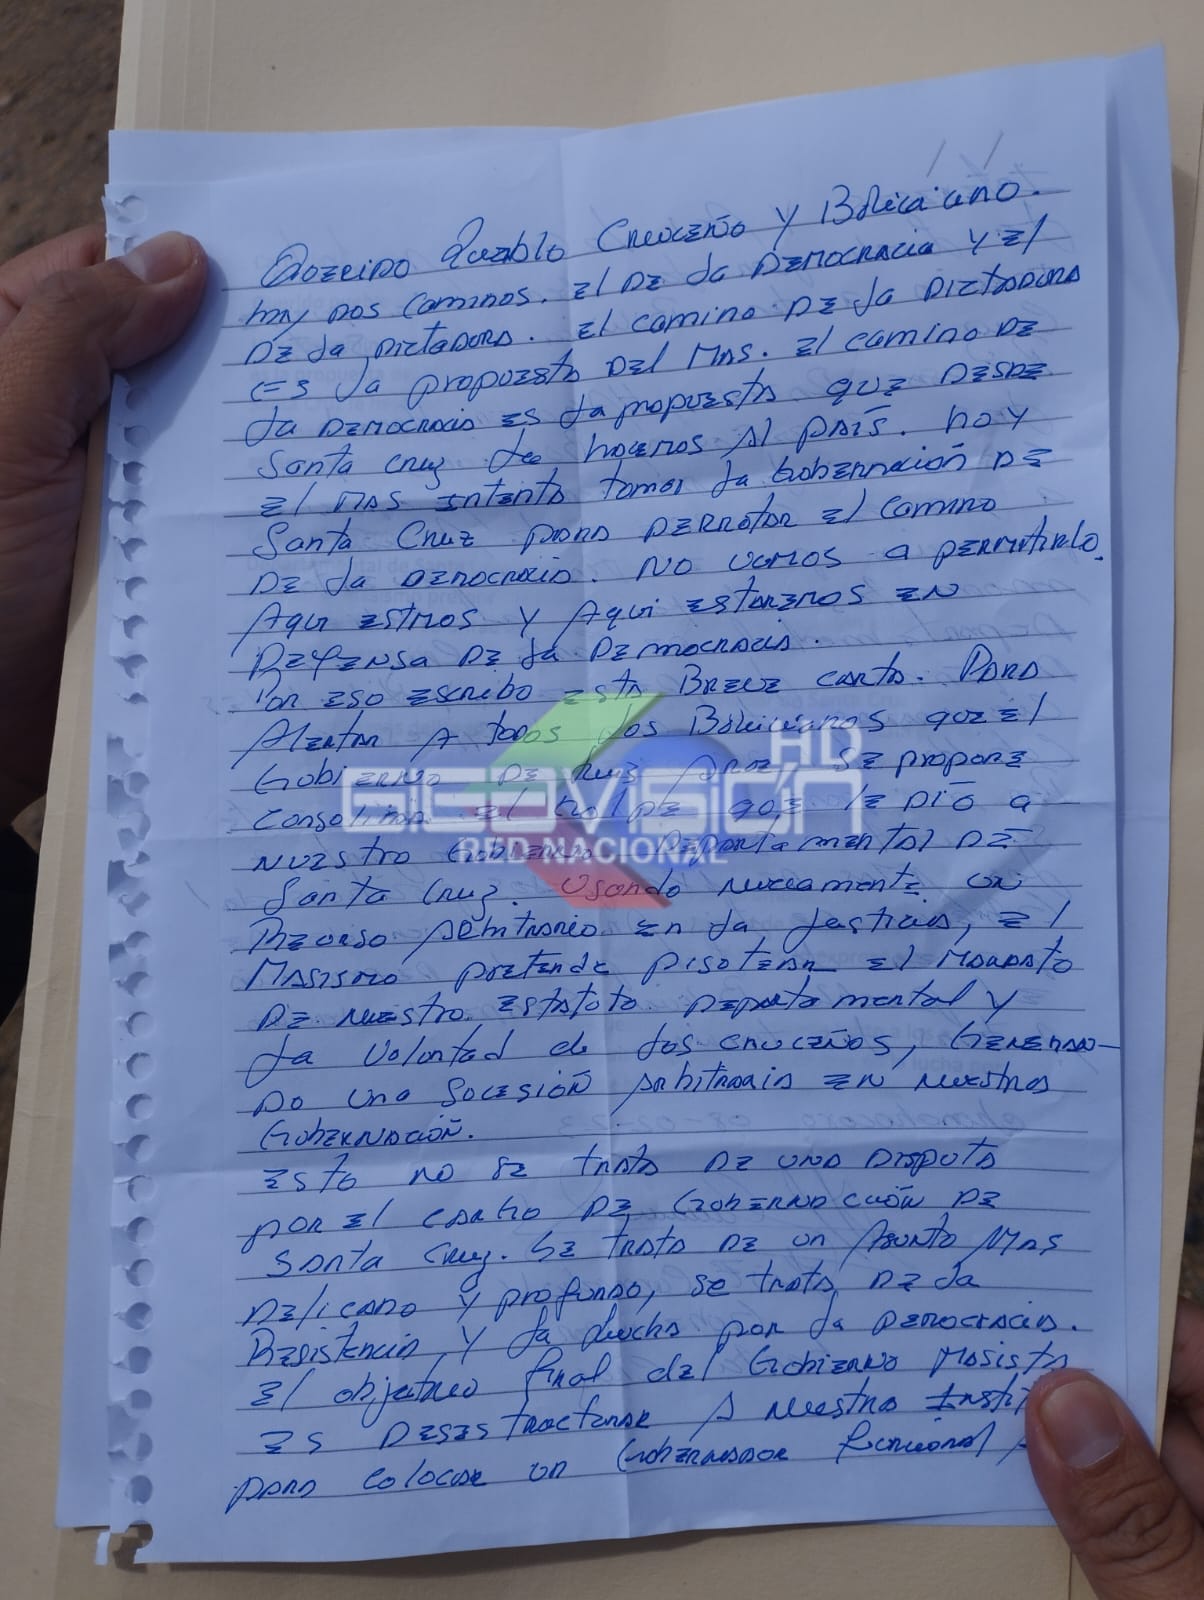 Querido Pueblo Cruceño y Boliviano.
hay dos caminos. El de la Democracia y el
de la Dictadura. El camino de la Dictadura
es la propuesta del Mas. El camino de
la Democracia es la propuesta que desde
Santa Cruz le hacemos al país. hoy
el Mas intenta tomar la Gobernación de
Santa Cruz para derrotar el camino
de la democracia. No vamos a permitirlo.
Aqui estmos y Aqui estaremos en
Defensa de la Democracia.
Por eso escribo esta Breve carta. Para
Alertar A todos los Bolivianos que el
Gobierno de Luis Arce, se propone
consolidar el Golpe que le dió a
nuestro Gobierno Departamental de
Santa Cruz. Usando nuevamente un
Recurso Arbitrario en la Justicia, el
Masismo pretende pisotear el Mandato
de nuestro Estatuto Departamental y
la Voluntad de los cruceños, Generan-
do una Sucesión Arbitraria en nuestra
Gobernación.
Esto no se trata de una Disputa
por el cargo de Gobernación de
Santa Cruz. Se trata de un Asunto Mas
Delicado y profundo, se trata de la
Resistencia y la lucha por la Democracia.
El objetivo final del Gobierno Masista
es Desestructurar A nuestra
para colocar un Gobernador funcional
Gigavisión HD
RED NACIONAL